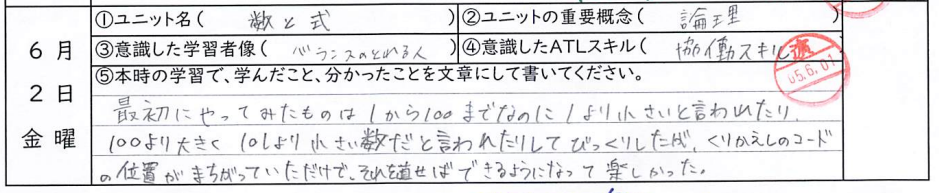 ①ユニット名( 数と式 ) ②ユニットの重要概念( 論理 )
6月2日金曜
③意識した学習者像( バランスのとれる人 ) ④意識したATLスキル( 協働スキル )
05.6.01
⑤本時の学習で、学んだこと、分かったことを文章にして書いてください。
最初にやってみたものは1から100までなのに1より小さいと言われたり、
100より大きく101より小さい数だと言われたりしてびっくりしたが、くりかえしのコード
の位置がまちがっていただけで、それを直せばできるようになって楽しかった。